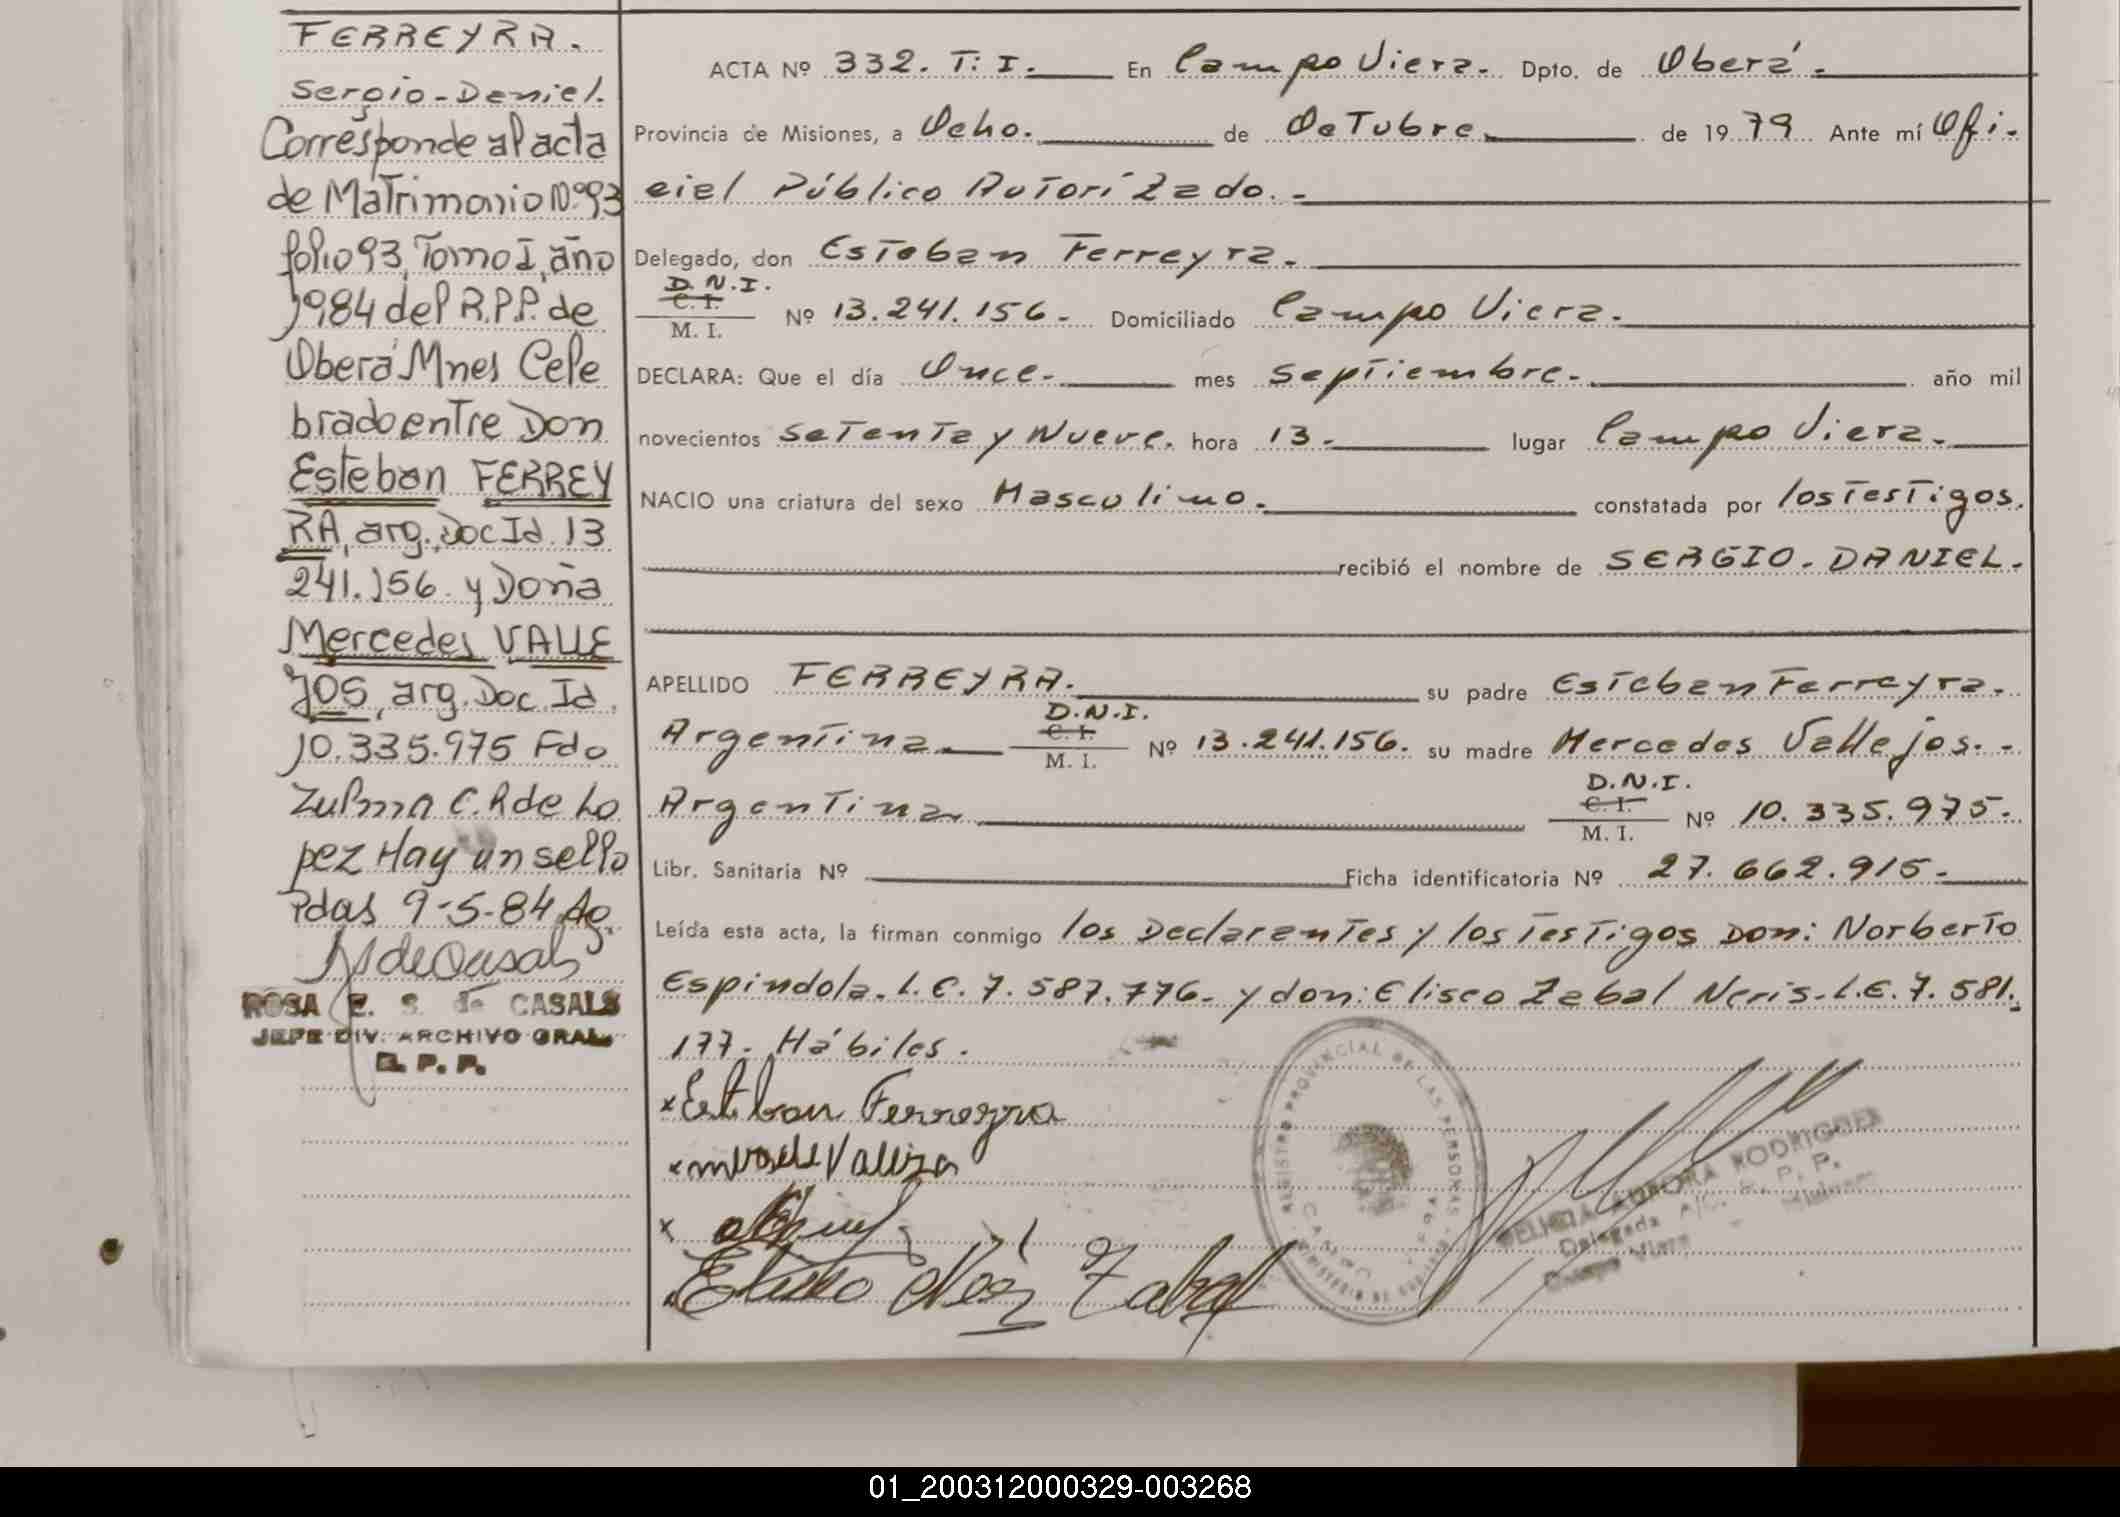 FERREYRA.
Sergio-Daniel.
Corresponde al acta
de Matrimonio Nº93
folio 93, Tomo I, año
1984 del R.P.P. de
Oberá Mnes Cele
brado entre Don
Esteban FERREY
RA, arg., Doc Id. 13
241.156. y Doña
Mercedes VALLE
JOS, arg. Doc. Id.
10.335.975 Fdo
Zulma C. R de Lo
pez Hay un sello
Pdas 9-5-84 Ag.
ROSA E. S. de CASALS
JEFE DIV. ARCHIVO GRAL.
R. P. P.
ACTA Nº 332. T: I. En Campo Viera. Dpto. de Oberá.
Provincia de Misiones, a Ocho. de Octubre. de 19 79 Ante mí Ofi-
cial Público Autorizado.-
Delegado, don Esteban Ferreyra.
D.N.I.
C. I.
M. I. Nº 13.241.156.- Domiciliado Campo Viera.
DECLARA: Que el día Once. mes Septiembre. año mil
novecientos Setenta y Nueve. hora 13. lugar Campo Viera.
NACIO una criatura del sexo Masculino. constatada por los Testigos.
recibió el nombre de SERGIO. DANIEL.
APELLIDO FERREYRA. su padre Esteban Ferreyra.
Argentina D.N.I.
C. I.
M. I. Nº 13.241.156. su madre Mercedes Vallejos.-
Argentina D.N.I.
C. I.
M. I. Nº 10.335.975.
Libr. Sanitaria Nº Ficha identificatoria Nº 27.662.915.
Leída esta acta, la firman conmigo los Declarantes y los Testigos Don: Norberto
Espindola. L.E. 7.587.776.- y don: Eliseo Zabal Neris.- L.E. 7.581.
177. Hábiles.
x Esteban Ferreyra
x
x
REGISTRO PROVINCIAL DE LAS PERSONAS
AURORA RODRIGUEZ
Delegada A/C. R. P. P.
Campo Viera - Misiones
01_200312000329-003268